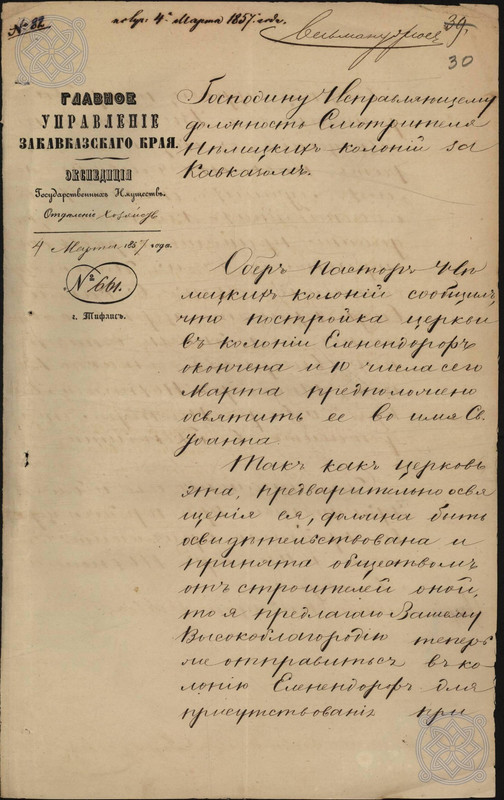 № 82.
получ. 4го Марта 1857 года.
Весьма нужное
39.
30
ГЛАВНОЕ
УПРАВЛЕНІЕ
ЗАКАВКАЗСКАГО КРАЯ.
ЭКСПЕДИЦІЯ
Государственныхъ Имуществъ.
Отдѣленіе Хозяйств.
4 Марта 1857 года.
№ 661.
г. Тифлисъ.
Господину Исправляющему
должность Смотрителя
Нѣмецкихъ колоній за
Кавказомъ.
Оберъ Пасторъ Нѣ
мецкихъ колоній сообщилъ,
что постройка церкви
въ колоніи Елененდорфъ
окончена и 10 числа сего
Марта предположено
освятить ее во имя Св.
Іоанна.
Такъ какъ церковь
эта, предварительно освя
щенія ея, должна быть
освидѣтельствована и
принята обществомъ
отъ строителей оной,
то я предлагаю Вашему
Высокоблагородію теперь
же отправиться въ ко
лонію Еленендорфъ для
присутствованія при